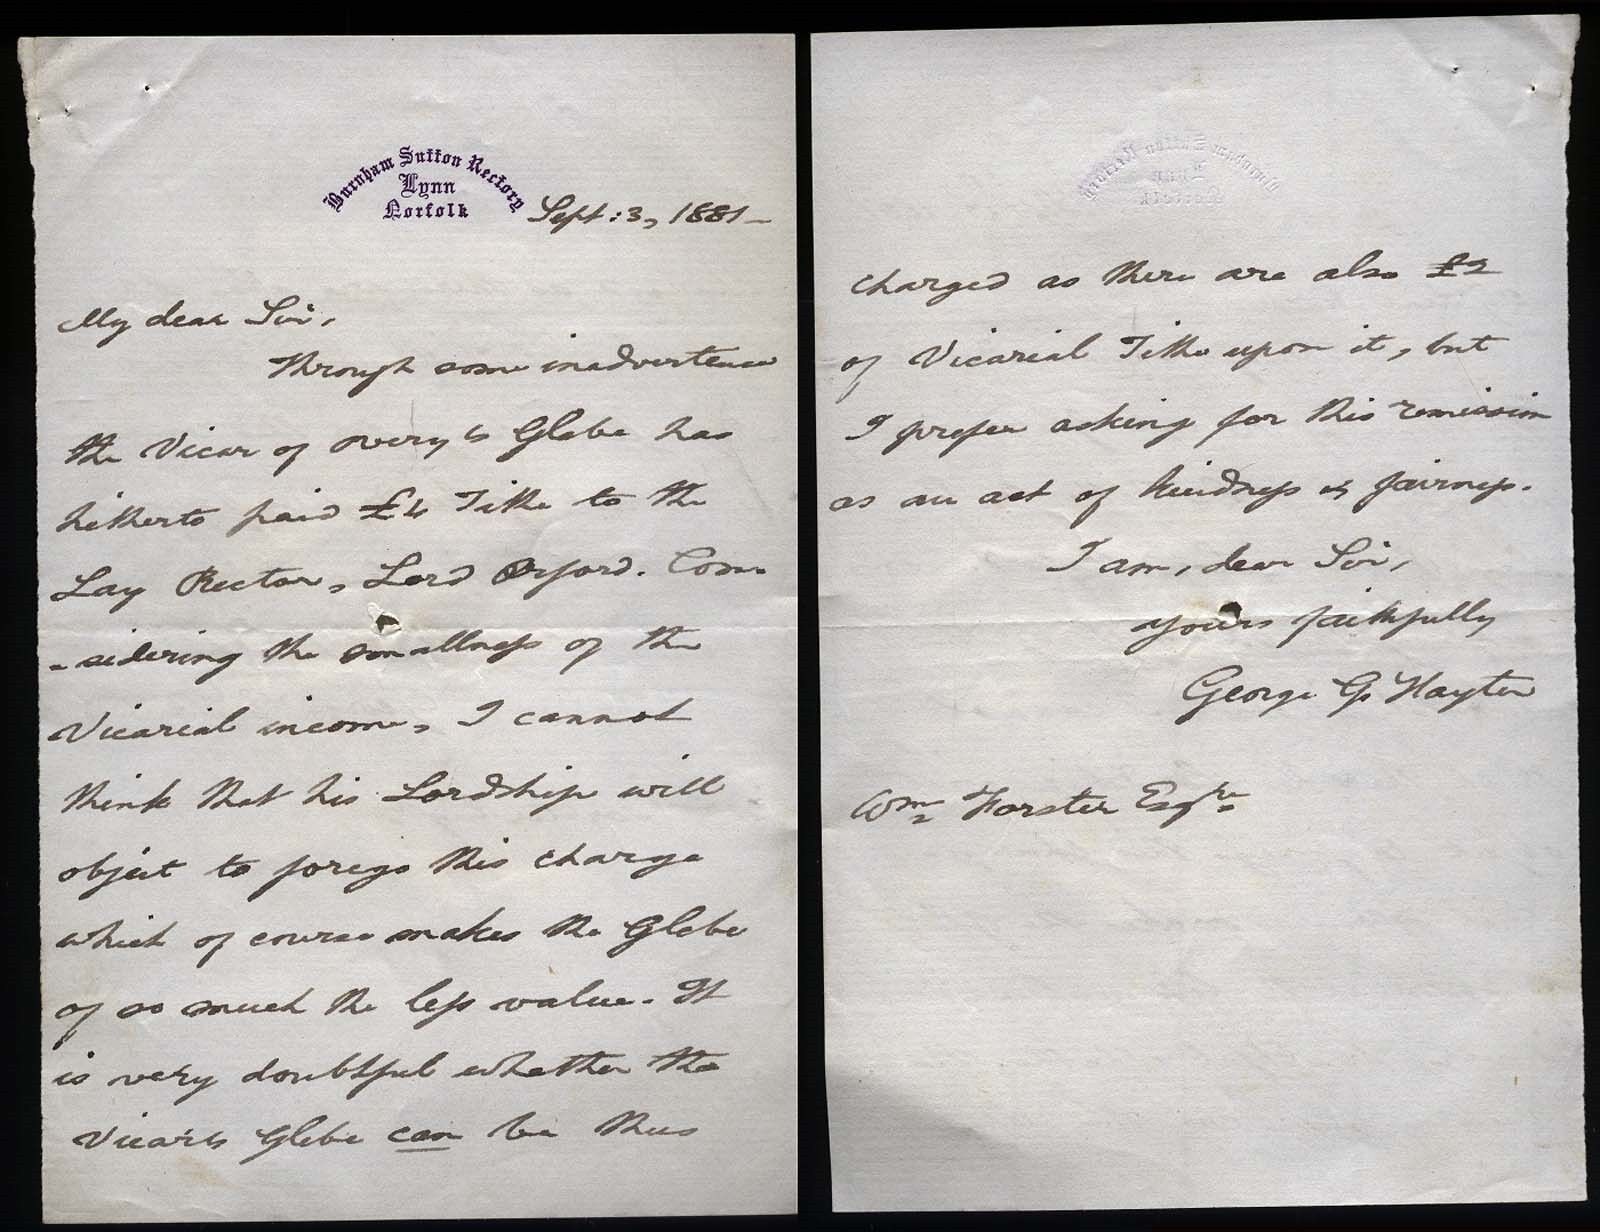 Burnham Sutton Rectory
Lynn
Norfolk
Sept: 3, 1881 -
My dear Sir,
Through some inadvertence
the Vicar of Overy's Glebe has
hitherto paid £4 Tithe to the
Lay Rector, Lord Orford. Con-
-sidering the smallness of the
Vicarial income, I cannot
think that his Lordship will
object to forego this charge
which of course makes the Glebe
of so much the less value. It
is very doubtful whether the
Vicar's Glebe can be thus
charged as there are also £2
of Vicarial Tithe upon it, but
I prefer asking for this remission
as an act of kindness & fairness.
I am, dear Sir,
yours faithfully
George G Hayter
Wm Forster Esqre